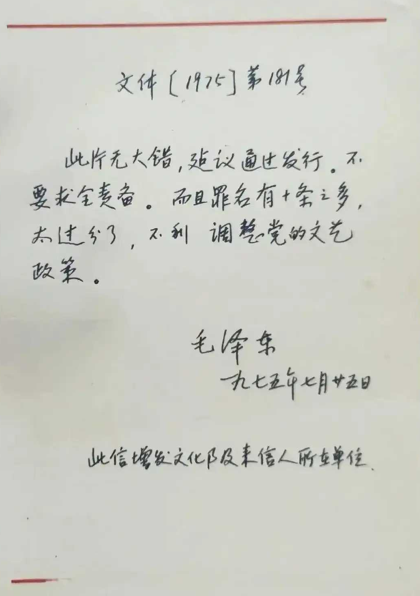 文件［1975］第181号
此片无大错，建议通过发行。不
要求全责备。而且罪名有十条之多，
太过分了，不利 调整党的文艺
政策。
毛泽东
一九七五年七月廿五日
此信增发文化部及来信人所在单位.